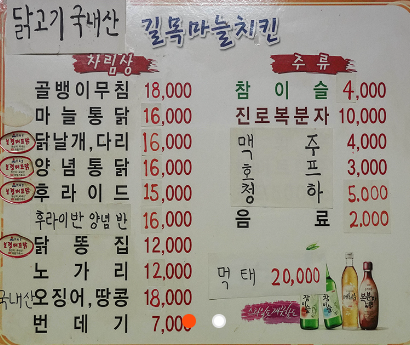 닭고기 국내산
길목마늘치킨
차림상
골뱅이무침 18,000
마늘통닭 16,000
닭날개,다리 16,000
양념통닭 16,000
후라이드 15,000
후라이반 양념 반 16,000
닭똥집 12,000
노가리 12,000
국내산 오징어,땅콩 18,000
번데기 7,000
주류
참이슬 4,000
진로복분자 10,000
맥주 4,000
호프 3,000
청하 5.000
음료 2.000
먹태 20,000